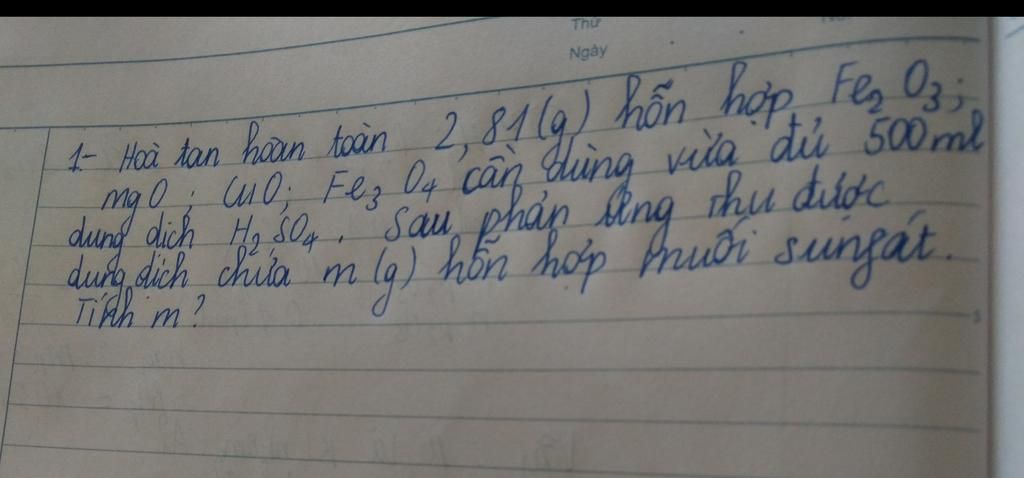 Thứ
Ngày
1- Hoà tan hoàn toàn 2,81(g) hỗn hợp Fe₂O₃;
mgO; CuO; Fe₃O₄ cần dùng vừa đủ 500ml
dung dịch H₂SO₄. Sau phản ứng thu được
dung dịch chứa m(g) hỗn hợp muối sungát.
Tính m?